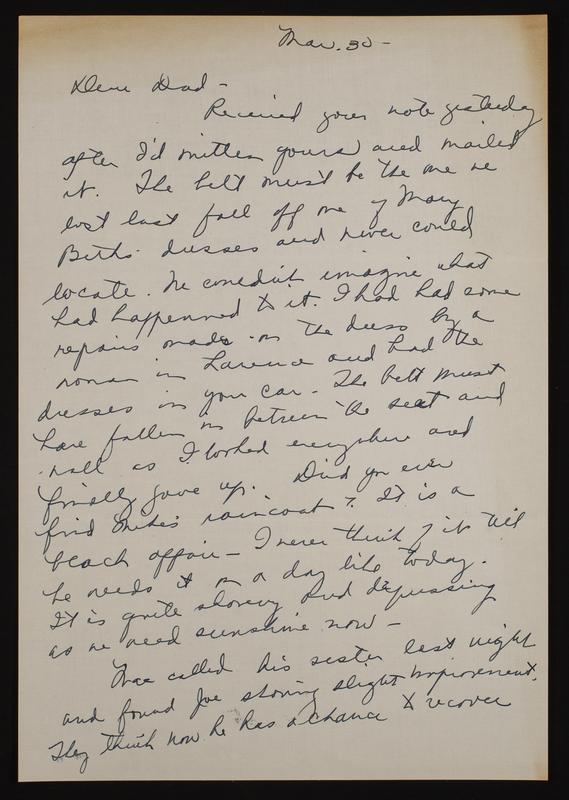 Mar. 30 -
Dear Dad -
Received your note yesterday
after I'd written yours and mailed
it. The belt must be the one we
lost last fall off one of Mary
Beths dresses and never could
locate. We couldn't imagine what
had happenned to it. I had had some
repairs made on the dress by a
woman in Larence and had the
dresses in your car - The belt must
have fallen in between the seat and
wall as I looked everywhere and
finally gave up. Did you ever
find Mike's raincoat? It is a
black affair - I never think of it till
he needs it on a day like today.
It is quite showery and depressing
as we need sunshine now -
called his sister last night
and found Joe showing slight improvement.
They think now he has a chance to recover